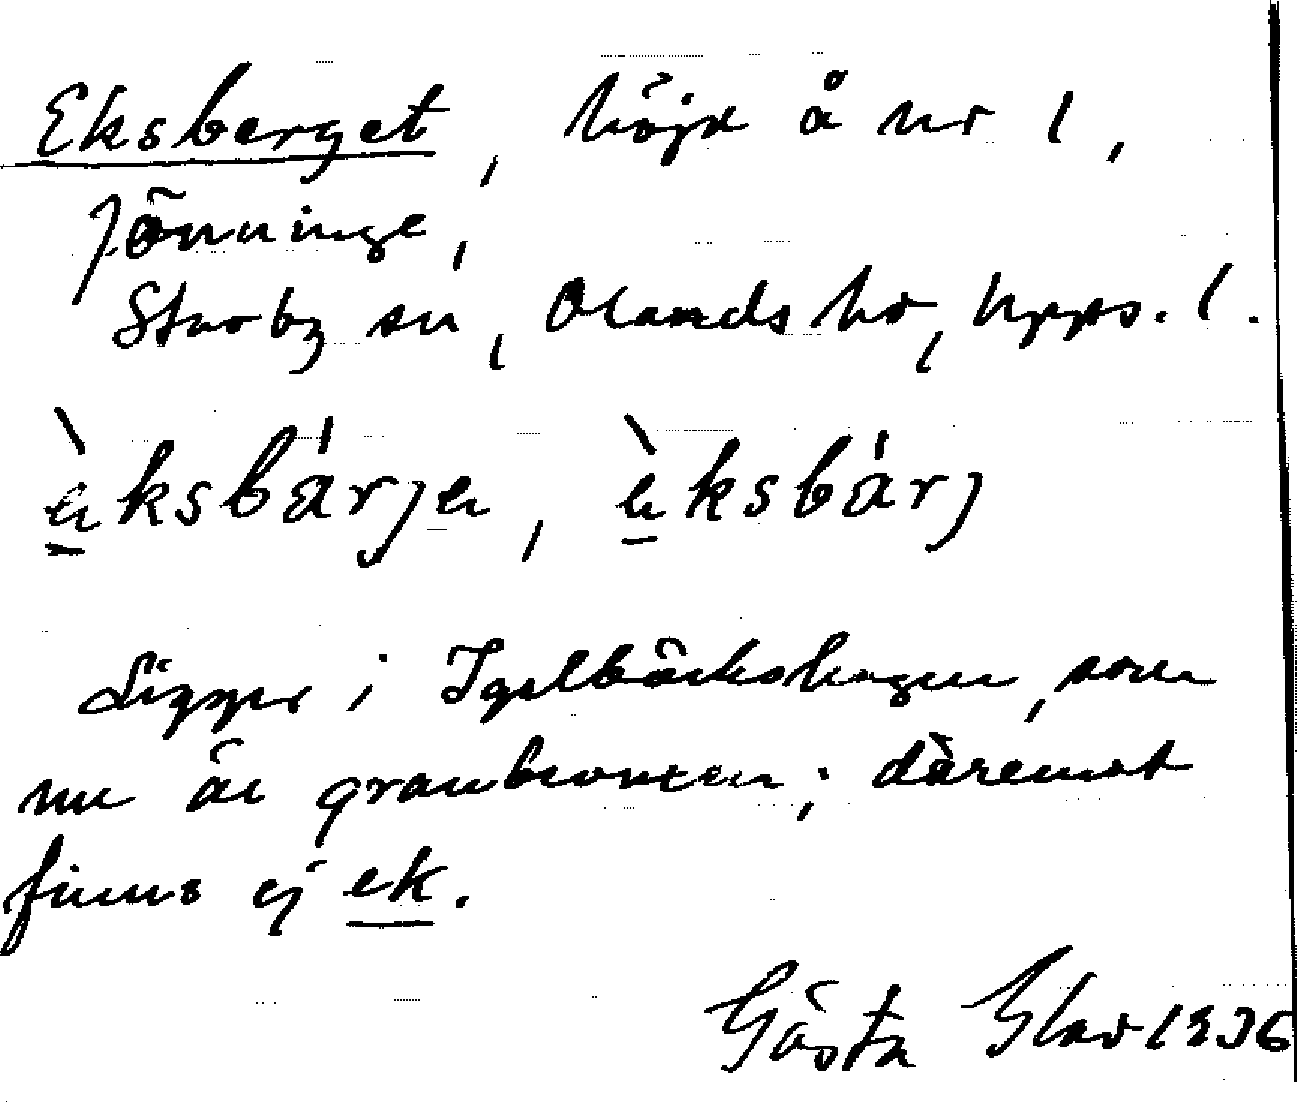 Eksberget, höjd å nr 1,
Jönninge,
Stavby sn, Olands hd, Upps. l.
èksbárje, èksbárj
Ligger i Igelbäckshagen, som
nu är granbevuxen; däremot
finns ej ek.
Gösta 1936